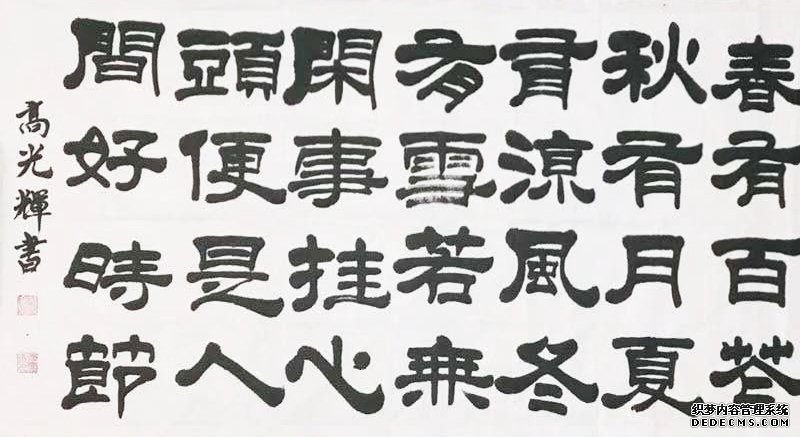 春有百花
秋有月夏
有涼風冬
有雪若無
閑事挂心
頭便是人
間好時節
高光輝書
织梦内容管理系统
DEDECMS.COM